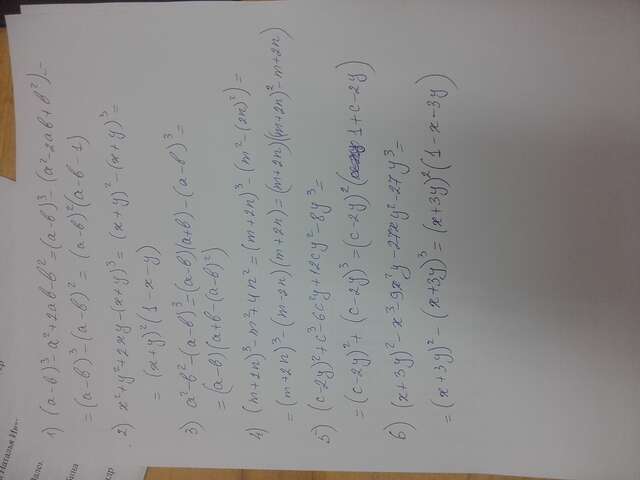 1) (a-b)³-a²+2ab-b²=(a-b)³-(a²-2ab+b²)=
=(a-b)³-(a-b)²=(a-b)²(a-b-1)
2) x²+y²+2xy-(x+y)³=(x+y)²-(x+y)³=
=(x+y)²(1-x-y)
3) a²-b²-(a-b)³=(a-b)(a+b)-(a-b)³=
=(a-b)(a+b-(a-b)²)
4) (m+2n)³-m²+4n²=(m+2n)³-(m²-(2n)²)=
=(m+2n)³-(m-2n)(m+2n)=(m+2n)((m+2n)²-m+2n)
5) (c-2y)²+c³-6c²y+12cy²-8y³=
=(c-2y)²+(c-2y)³=(c-2y)²(1+c-2y)
6) (x+3y)²-x³-9x²y-27xy²-27y³=
=(x+3y)²-(x+3y)³=(x+3y)²(1-x-3y)
Наталья